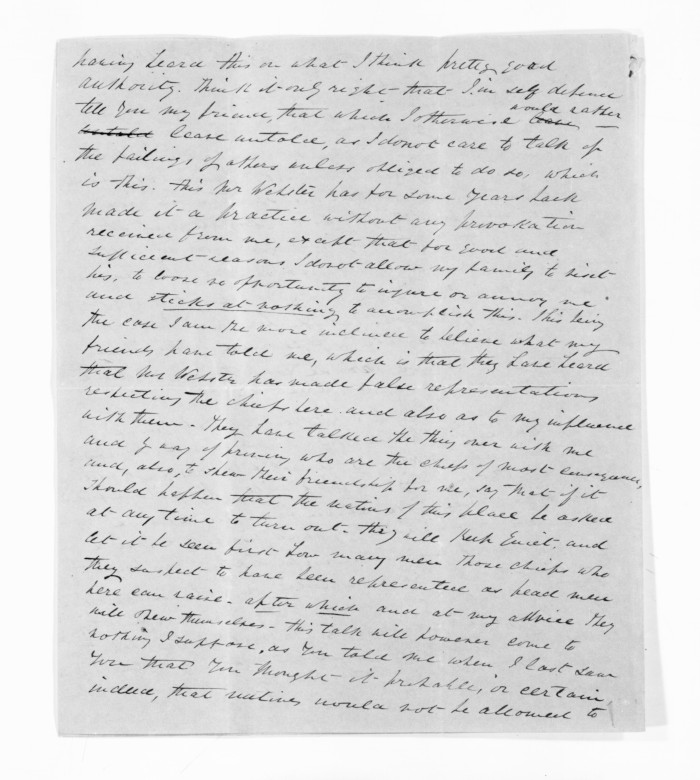 having heard this on what I think pretty good
authority. Think it only right that I'm self defence
tell you my friend, that which I otherwise would rather
leave untold, as I do not care to talk of
the failings of others unless obliged to do so, which
is this. This Mr Webster has for some years back
made it a practice without any provokation
received from me, except that for good and
sufficient reasons I do not allow my family to visit
his, to loose no opportunity to injure or annoy me
and sticks at nothing to accomplish this. This being
the case I am the more inclined to believe what my
friends have told me, which is that they have heard
that Mr Webster has made false representations
respecting the chiefs here and also as to my influence
with them. They have talked the thing over with me
and by way of proving who are the chiefs of most consequence,
and, also, to shew their friendship for me, say that if it
should happen that the natives of this place be asked
at any time to turn out - they will keep quiet, and
let it be seen first how many men those chiefs who
they suspect to have been represented as head men
here can raise - after which and at my advice they
will shew themselves - this talk will however come to
nothing I suppose, as you told me when I last saw
you that you thought it probable, or certain
indeed, that natives would not be allowed to